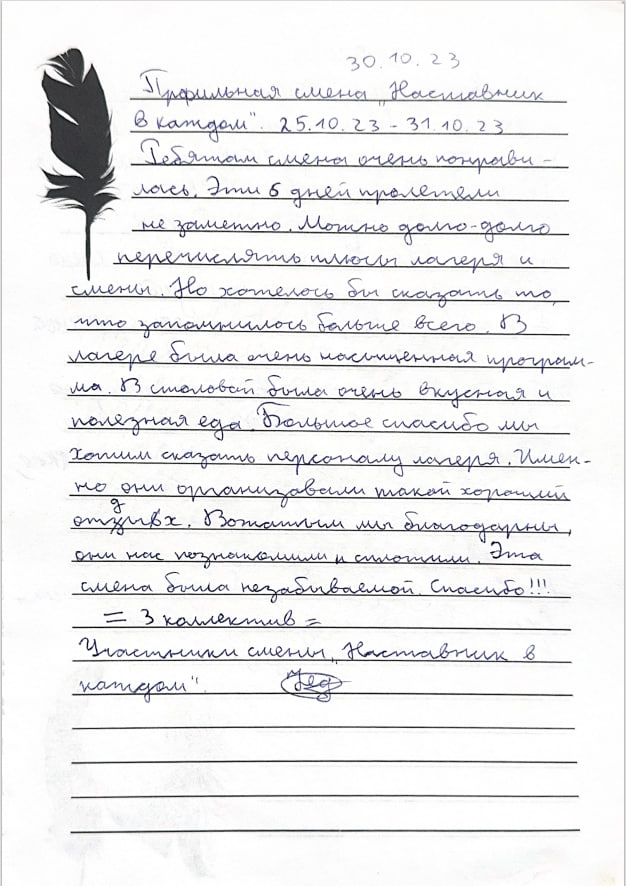 30.10.23
Профильная смена „Наставник
в каждом". 25.10.23 - 31.10.23
Ребятам смена очень понрави-
лась. Эти 6 дней пролетели
не заметно. Можно долго-долго
перечислять плюсы лагеря и
смены. Но хотелось бы сказать то,
что запомнилось больше всего. В
лагере была очень насыщенная програм-
ма. В столовой была очень вкусная и
полезная еда. Большое спасибо мы
хотим сказать персоналу лагеря. Имен-
но они организовали такой хороший
отдых. Вожатым мы благодарны,
они нас познакомили и сплотили. Эта
смена была незабываемой. Спасибо!!!
= 3 коллектив =
Участники смены „Наставник в
каждом".